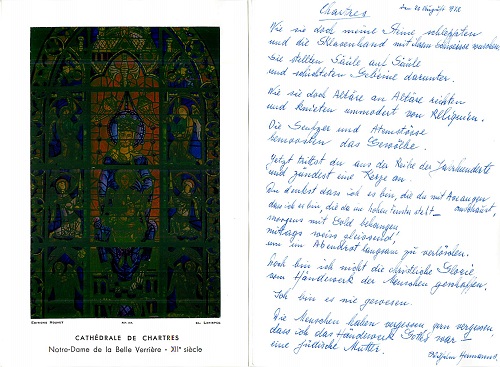 EDITIONS HOUVET
CATHÉDRALE DE CHARTRES
Notre-Dame de la Belle Verrière - XIIe siècle
Chartres
den August
Wie sie doch meine Sinne schleppten
und die Sklavenhand mit ihrem Schweisse wuschen
Sie stellten Säule auf Säule
und schichteten Gebeine darunter.
Wie sie doch Altäre an Altäre reihten
und knieten von Reliquien.
Die Seufzer und Atemstösse
bemoosten das Gewölbe.
Jetzt trittst du aus der Reihe der Jahrhunderte
und zündest eine Kerze an.
Du denkst dass ich es bin, die du mit Ave
dass ich es bin, die da im hohen Fenster steht —
morgens mit Gold behangen
mittags weiss gleissend,
um im Abendrot langsam zu verlöschen.
Doch bin ich nicht die christliche Glorie
vom Händewerk der Menschen geschaffen.
Ich bin es nie gewesen.
Die Menschen haben vergessen, gern vergessen,
dass ich das Händewerk Gottes war —
eine jüdische Mutter.